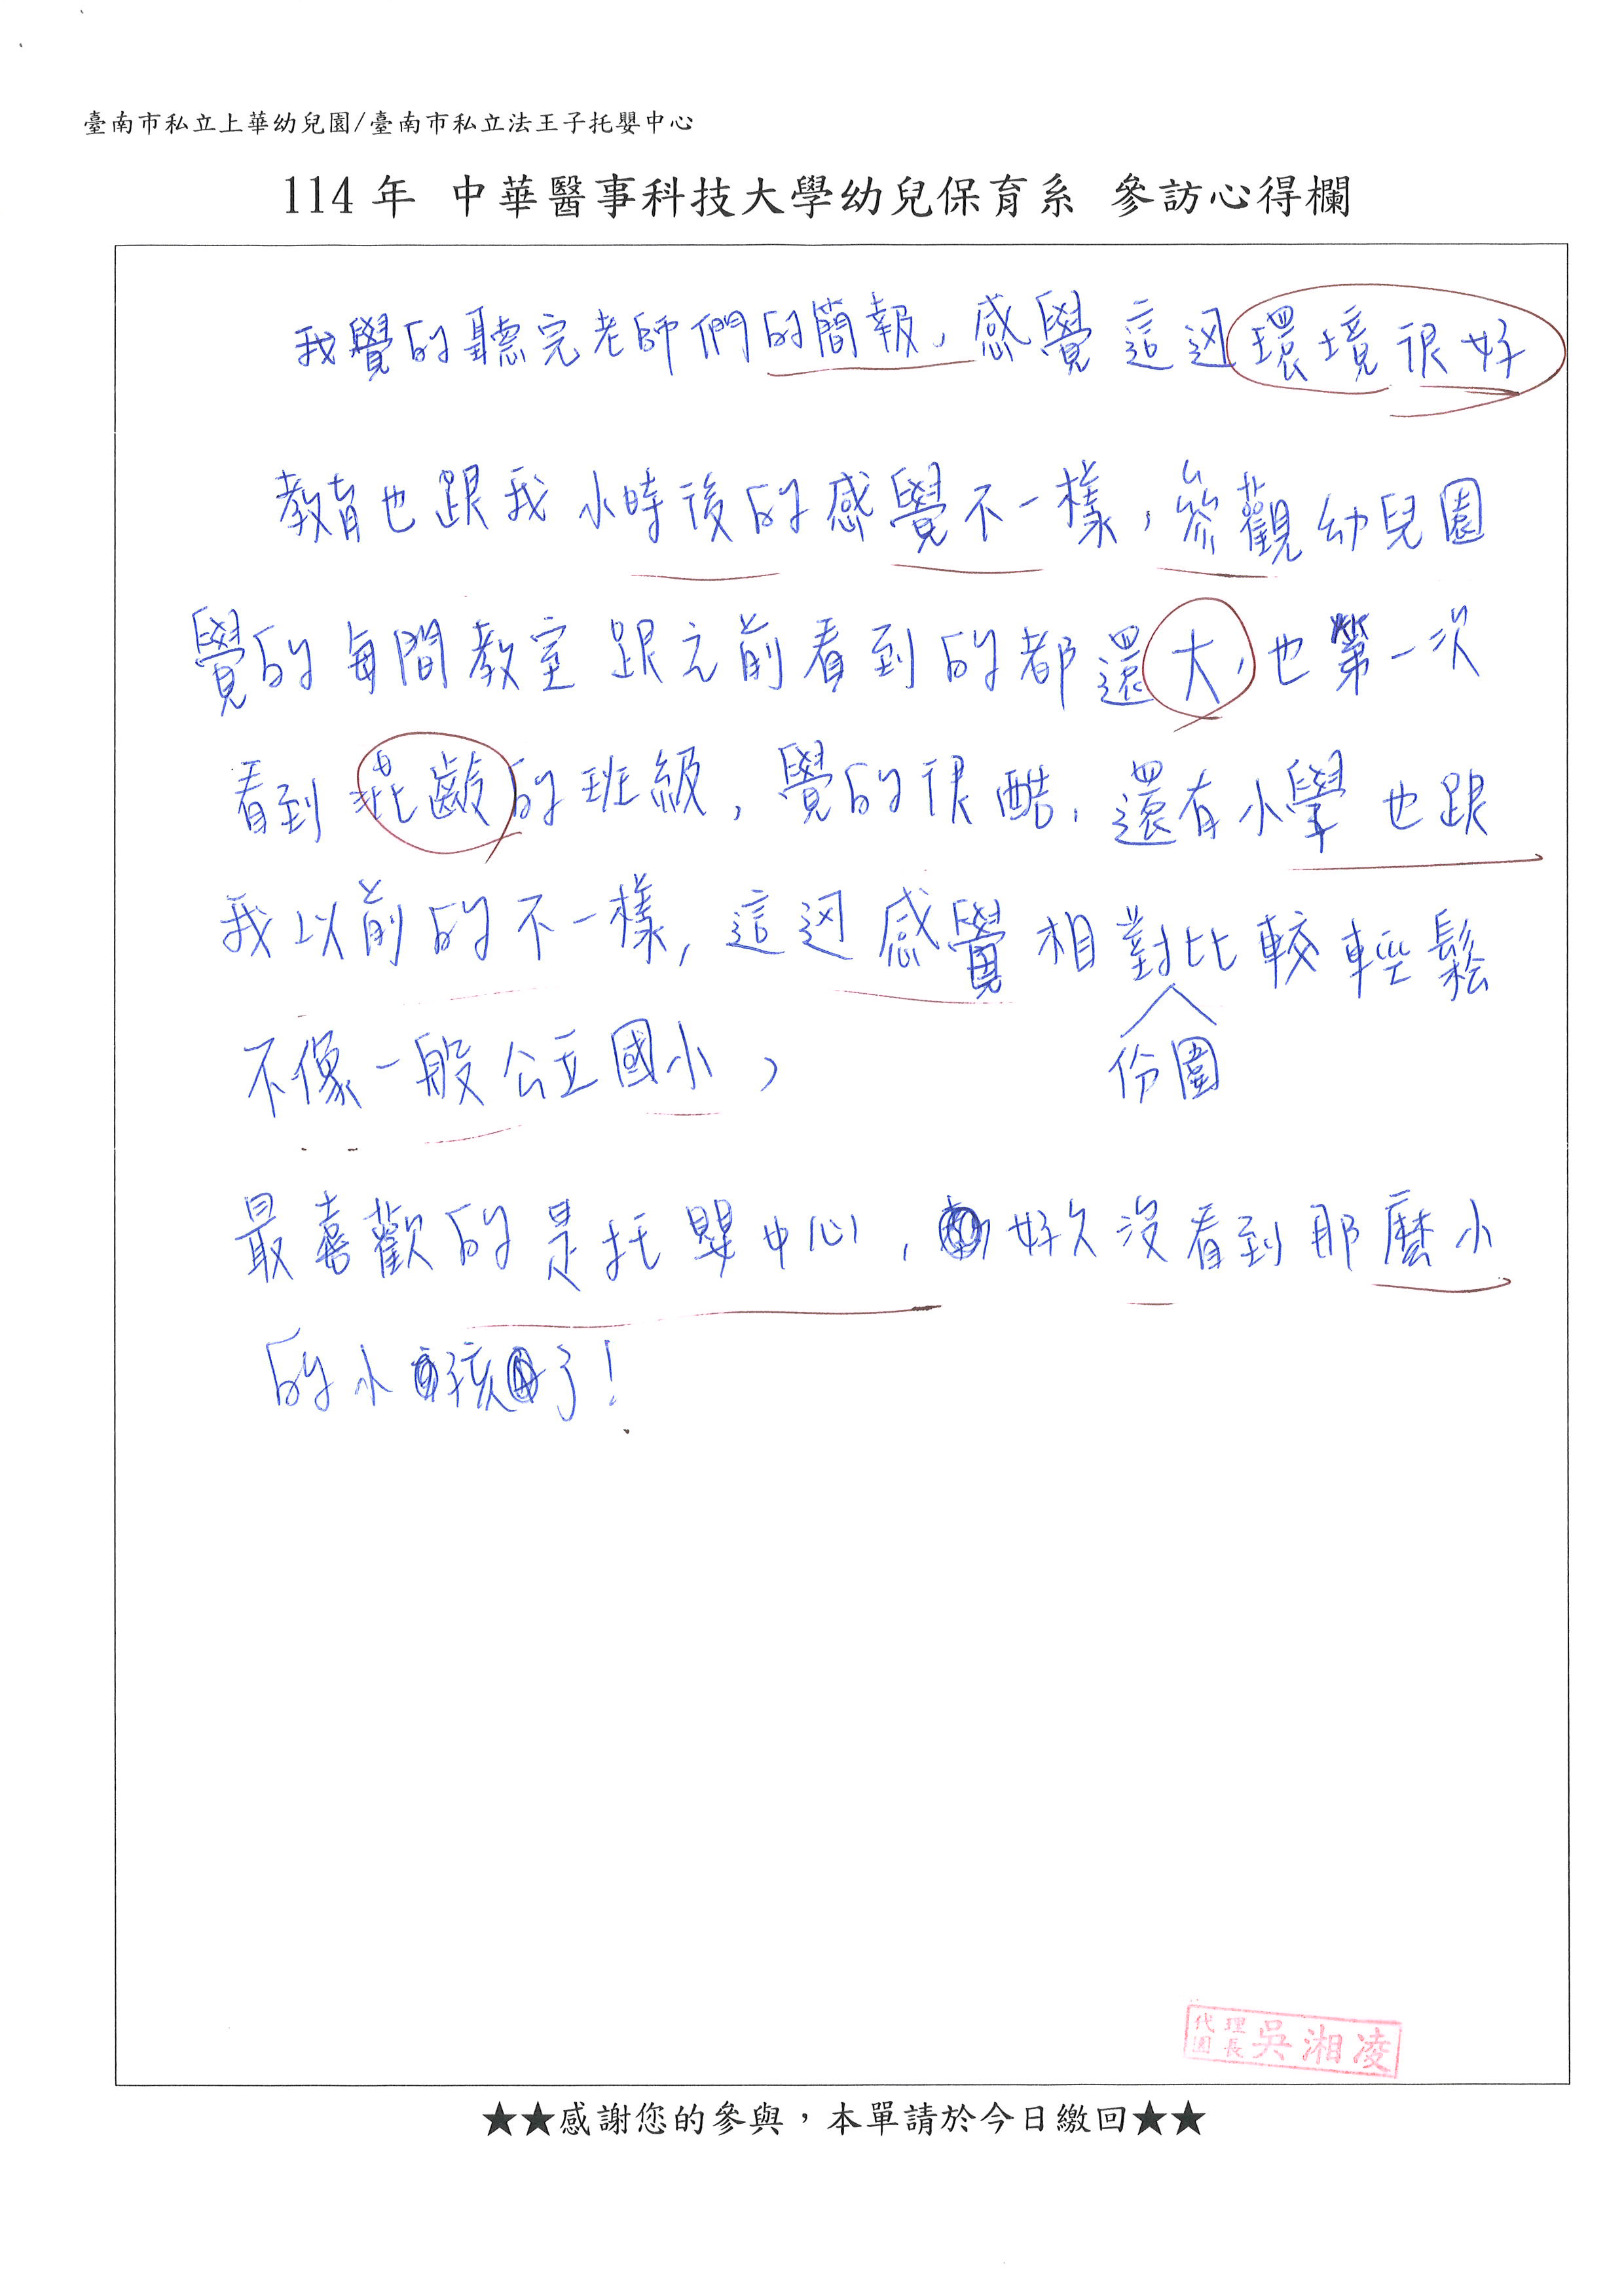 臺南市私立上華幼兒園/臺南市私立法王子托嬰中心
114 年 中華醫事科技大學幼兒保育系 參訪心得欄
我覺的聽完老師們的簡報,感覺這迌環境很好
教育也跟我小時後的感覺不一樣,參觀幼兒園
覺的每間教室跟之前看到的都還大,也第一次
看到混齡的班級,覺的很酷,還有小學也跟
我以前的不一樣,這迌感覺相對比較輕鬆
不像一般公立國小,
份圍
最喜歡的是托嬰中心,好久沒看到那麼小
的小孩了!
代理園長 吳湘凌
★★感謝您的參與,本單請於今日繳回★★